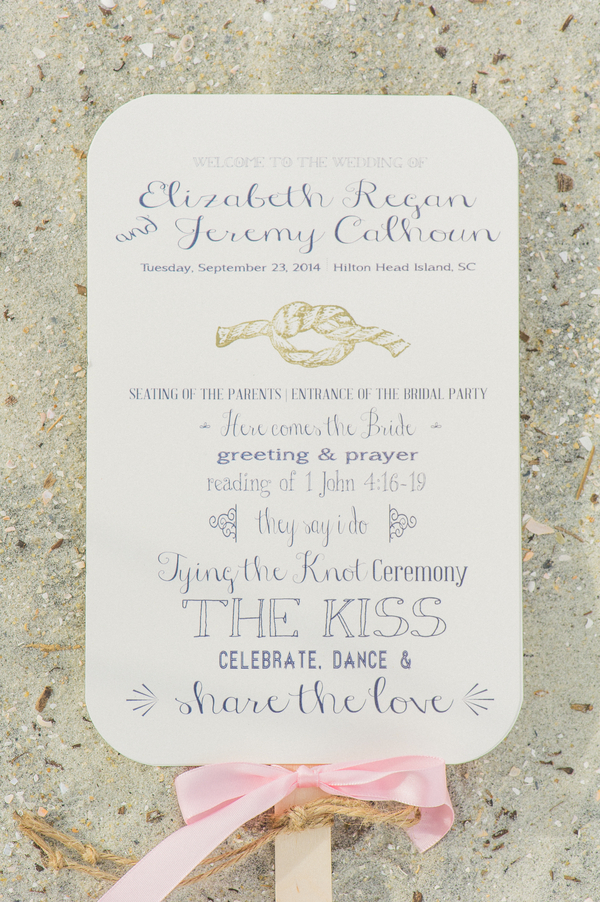 WELCOME TO THE WEDDING OF
Elizabeth Regan
and Jeremy Calhoun
Tuesday, September 23, 2014 | Hilton Head Island, SC
SEATING OF THE PARENTS | ENTRANCE OF THE BRIDAL PARTY
Here comes the Bride
greeting & prayer
reading of 1 John 4:16-19
they say i do
Tying the Knot Ceremony
THE KISS
CELEBRATE, DANCE &
share the love